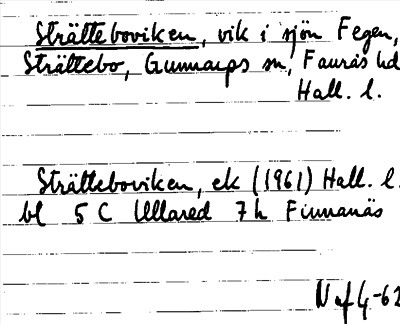 Strätteboviken, vik i sjön Fegen,
Strättebo, Gunnarps sn, Faurås hd
Hall. l.
Strätteboviken, ek (1961) Hall. l.
bl 5 C Ullared 7 h Finnanäs